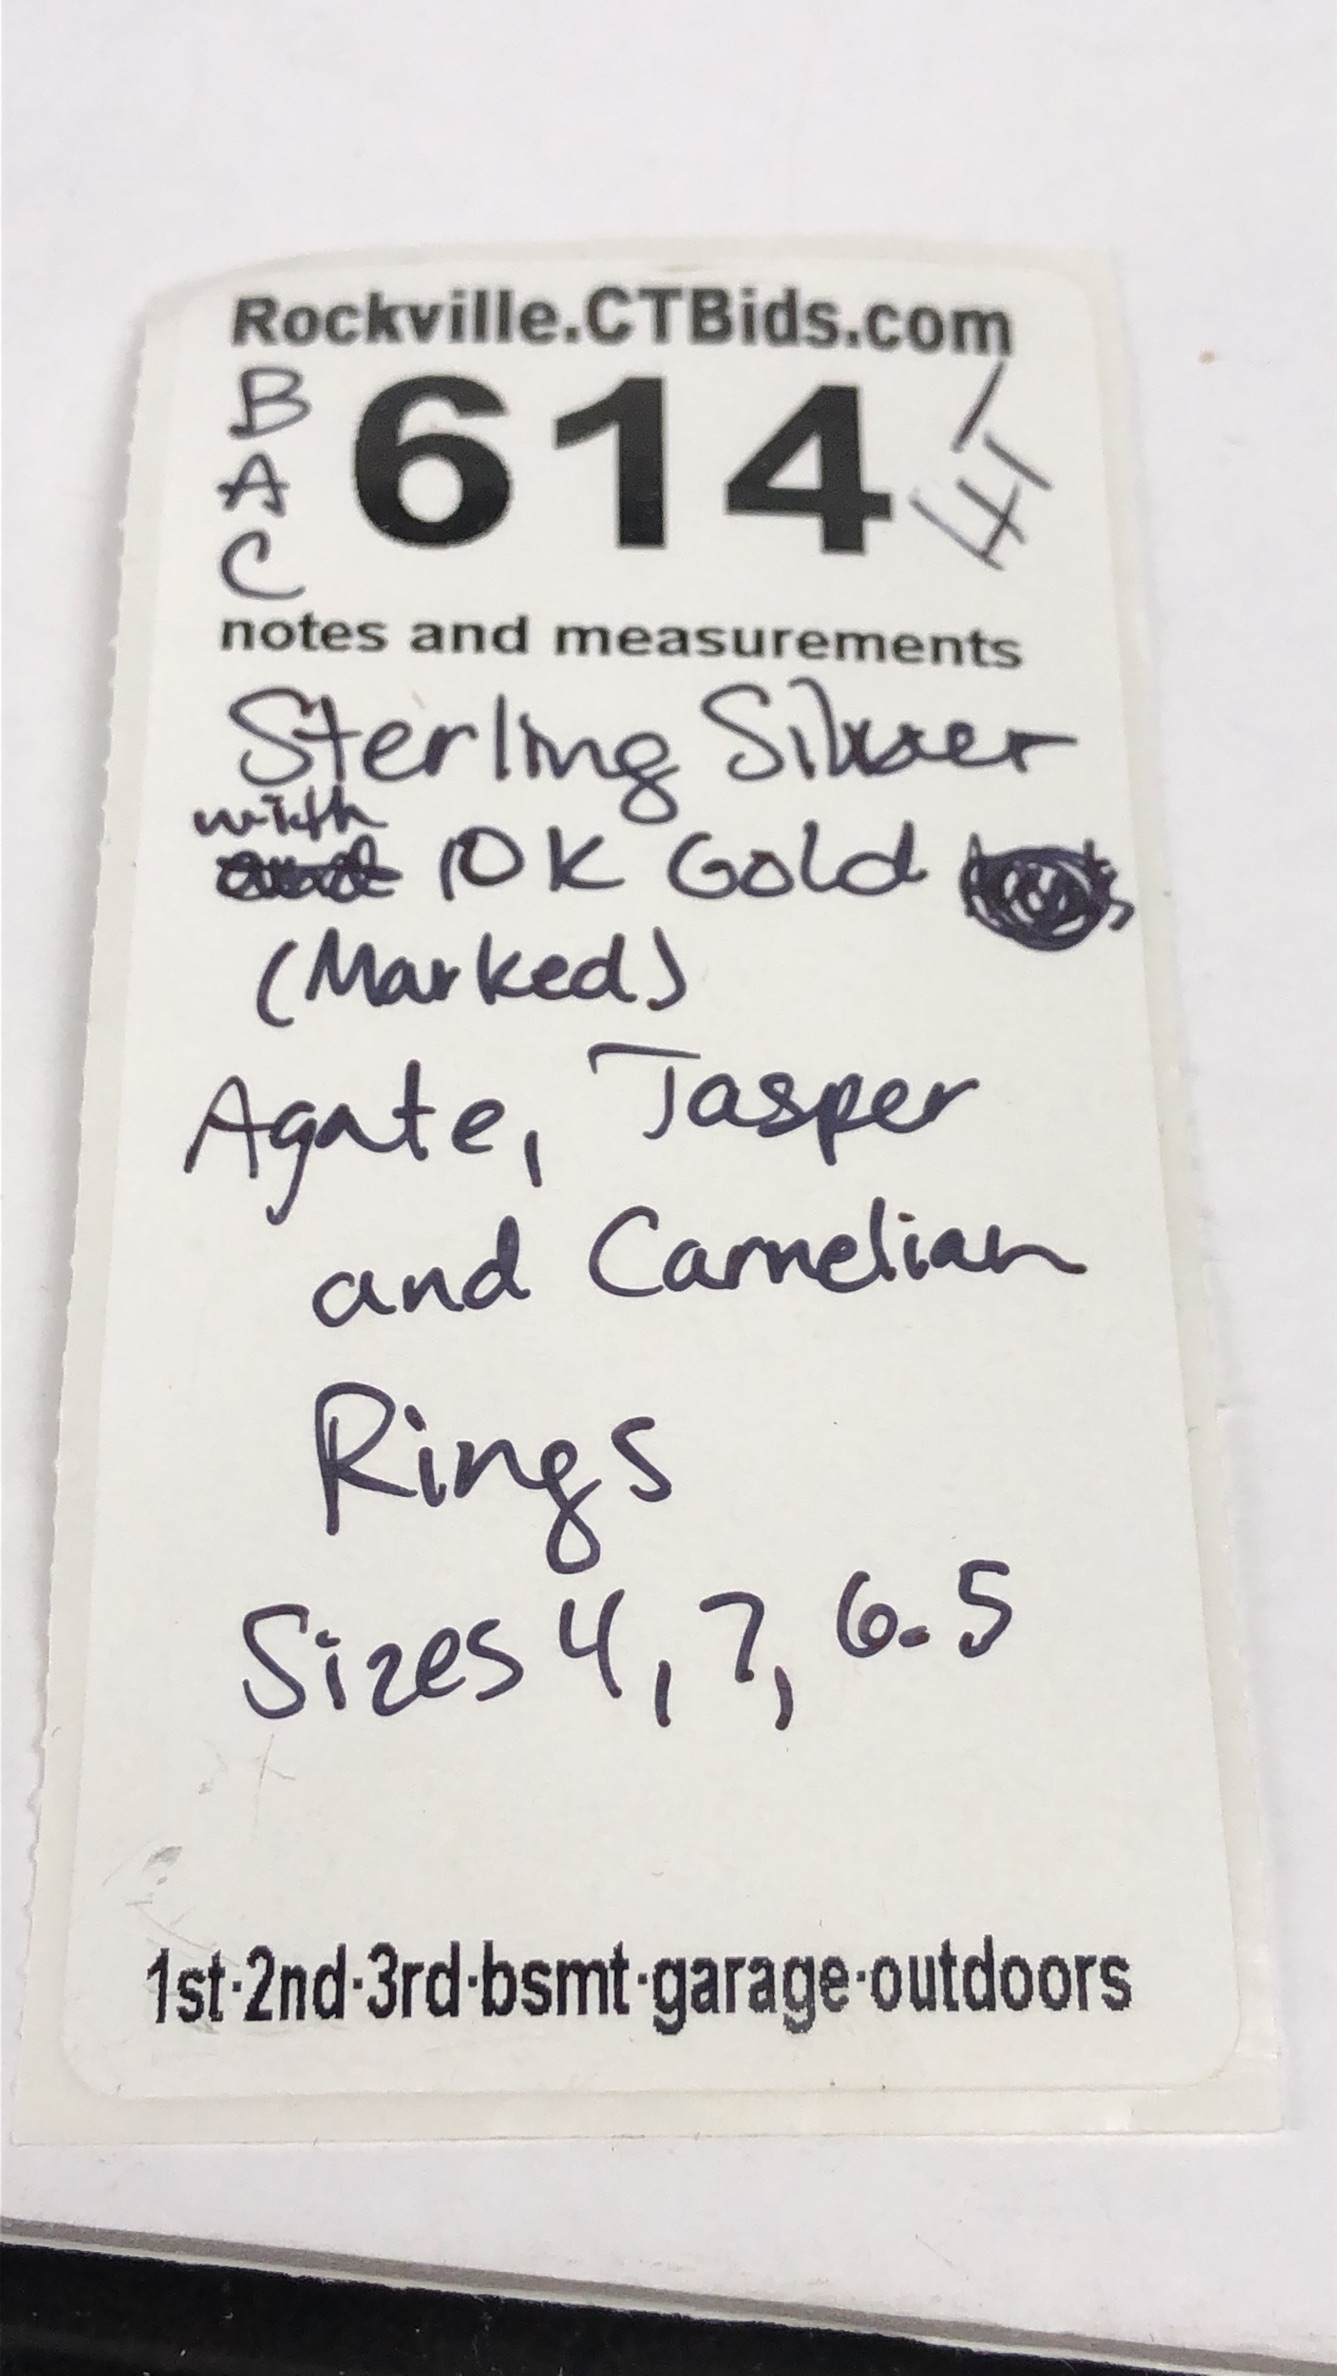 Rockville.CTBids.com
B
A
C
614
notes and measurements
Sterling Silver
with
10K Gold
(Marked)
Agate, Jasper
and Carnelian
Rings
Sizes 4, 7, 6.5
1st·2nd·3rd·bsmt·garage·outdoors